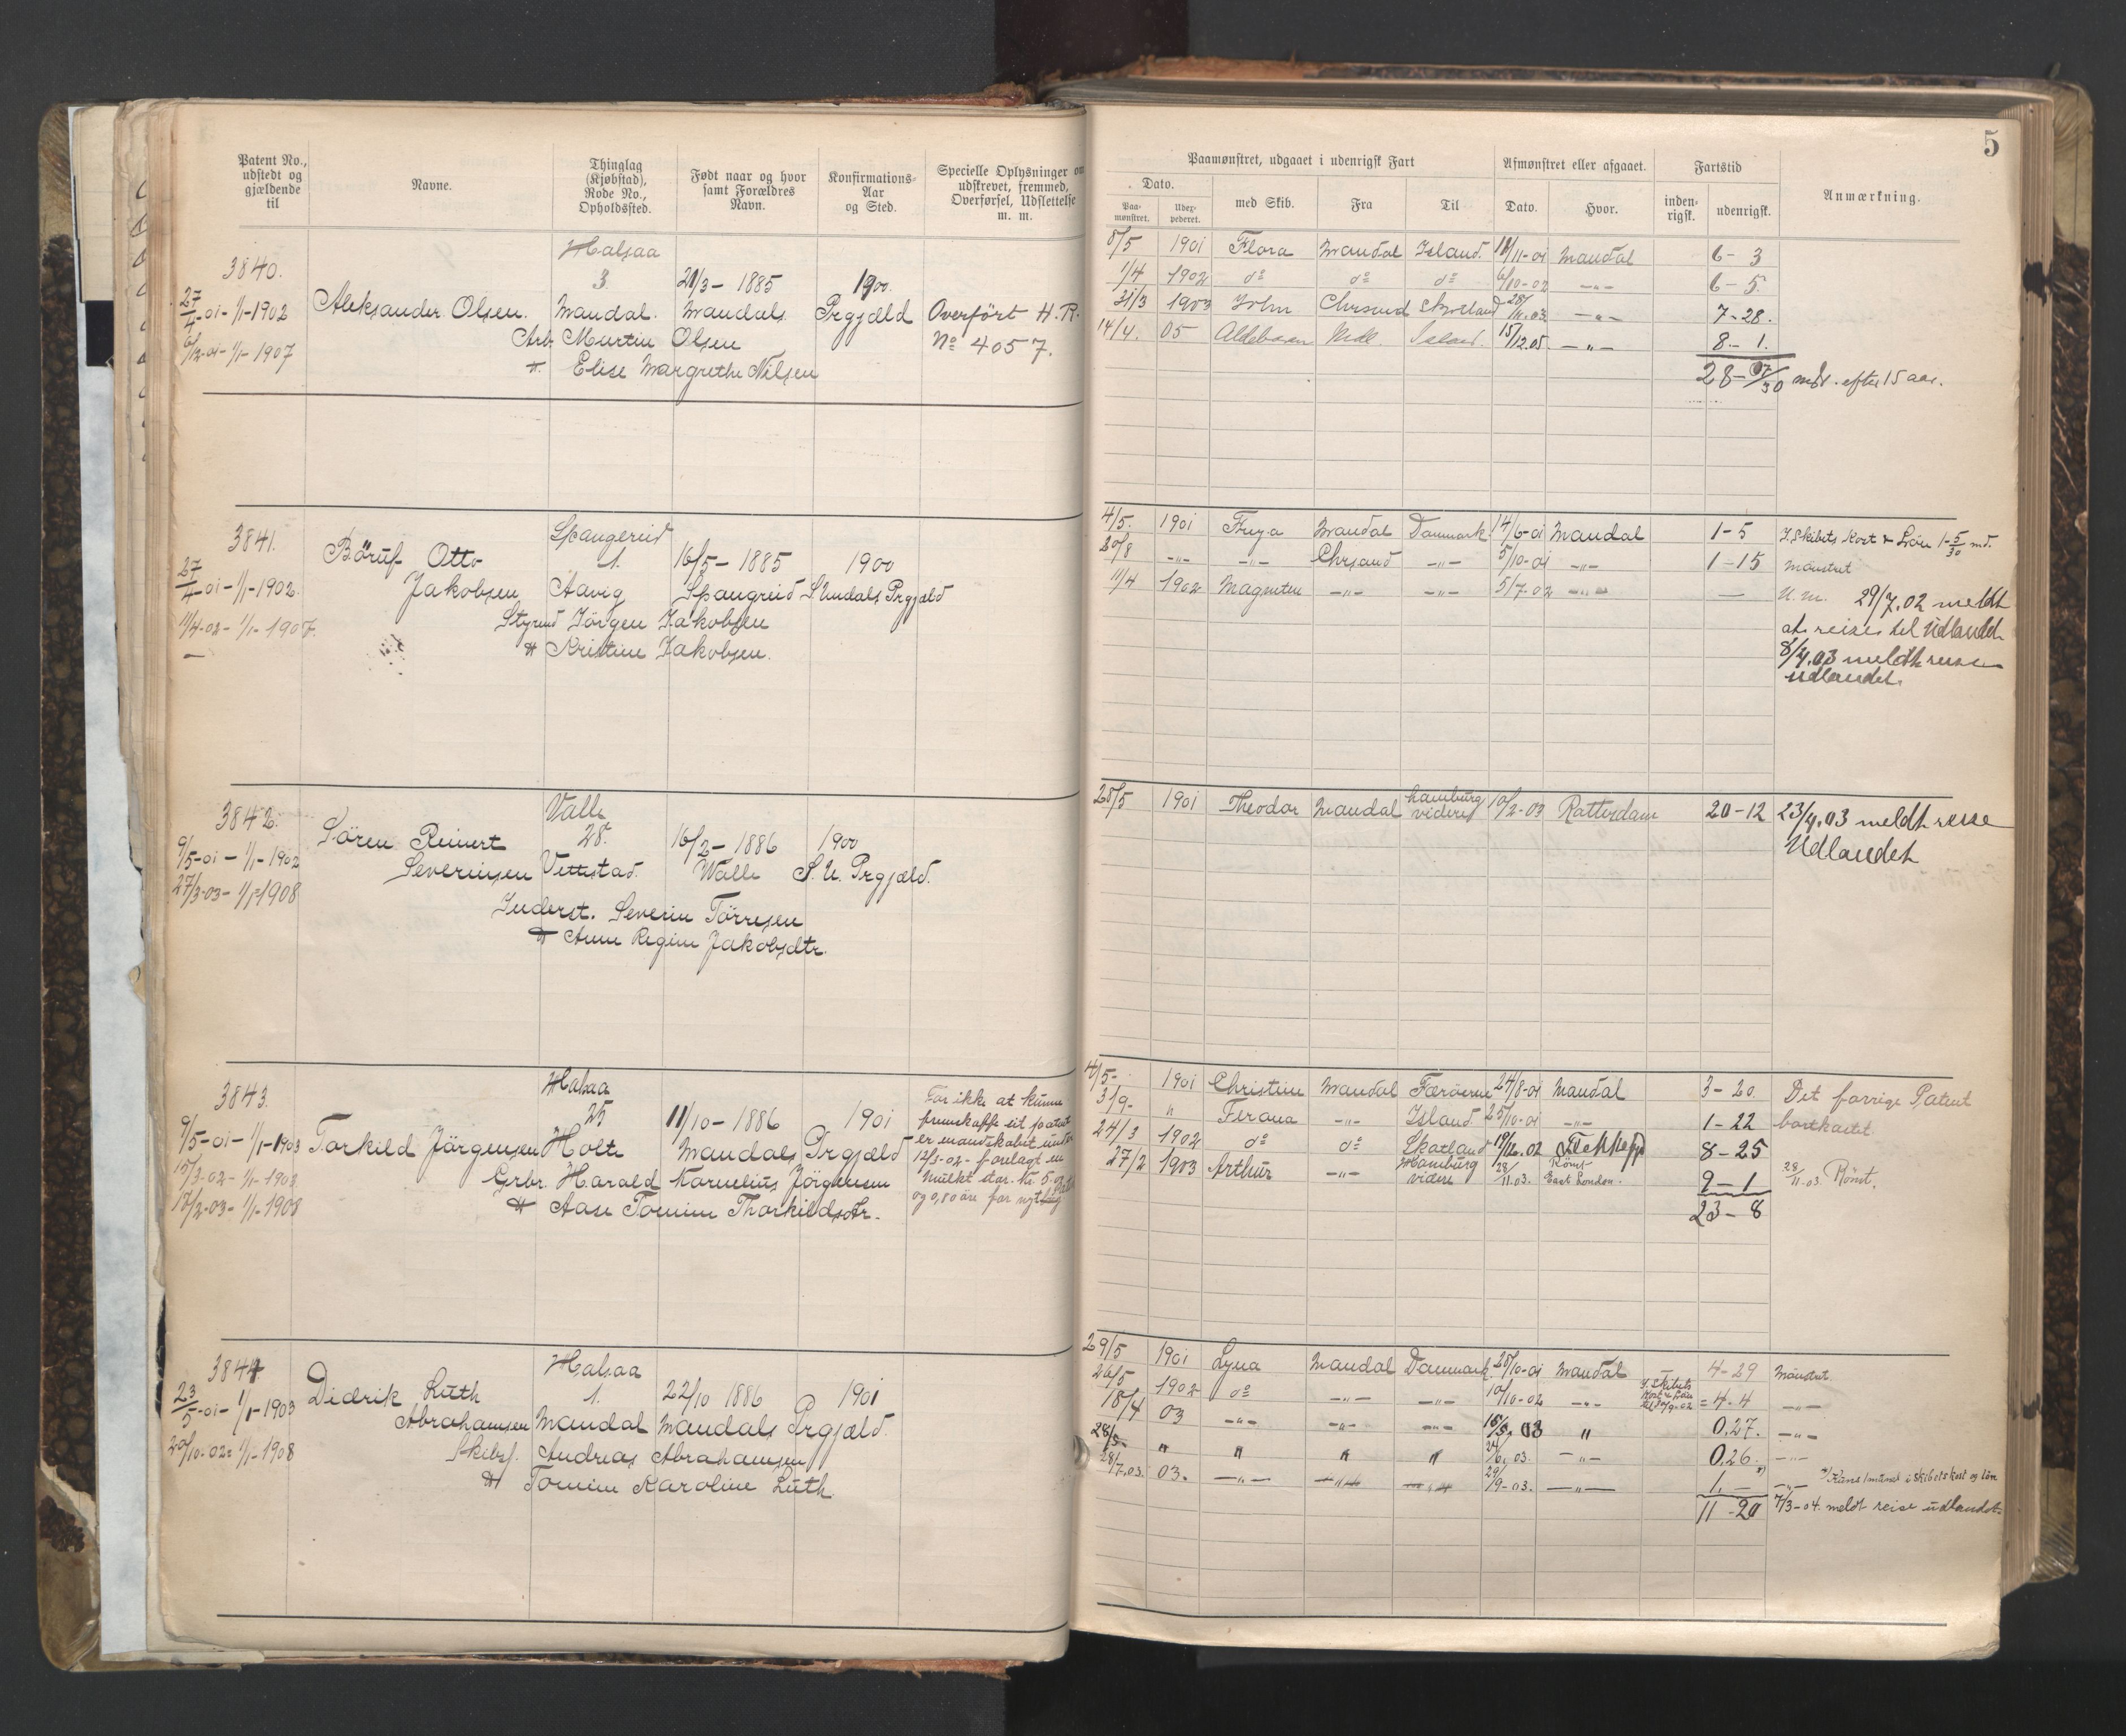 5
Patent No., udstedt og gjældende til
Navne.
Thinglag (Kjøbstad), Rode No., Opholdssted.
Født naar og hvor samt Forældres Navn.
Konfirmations-Aar og Sted.
Specielle Oplysninger om udskrevet, fremmed, Overførsel, Udslettelse m. m.
Paamønstret, udgaaet i udenrigsk Fart
Afmønstret eller afgaaet.
Fartstid
Anmærkning.
Dato.
Paa-mønstret.
Udex-pederet.
med Skib.
Fra
Til
Dato.
Hvor.
inden-rigsk.
udenrigsk.
Halsaa
3840. 3 21/3 - 1885 1900.
27/4-01-1/1-1902 Aleksander Olsen. Mandal. Mandals Prgjæld Overført H.R.
Arb. Martin Olsen No 4057.
6/12-01-1/1-1907 H. Elise Margrethe Nilsen
8/5 1901 Flora Mandal Island. 11-01 Mandal 6-3
1/4 1902 do do do 6/10-02 -"- 6-5
31/3 1903 John Chrsand Skotland 28/11.03. -"- 7-28.
14/4. 05 Aldebaran Mdl. Island. 15/12.05. -"- 8-1.
28-07/30 mdr. efter 15 aar.
Spangereid
3841. Böruf Otto 1. 16/5-1885 1900
27/4-01-1/1-1902. Jakobsen Aavig Spangreid S Undals Prgjæld
11/4-02-1/1-1907. Styrmd Jörgen Jakobsen
H Kristine Jakobsen.
4/5. 1901 Freya Mandal Danmark 14/6-01 Mandal 1-5 I Skibets Kost & Løn 1-5/30 md.
20/8 -"- -"- Chrsand -"- 5/10-01 -"- 1-15 Mönstret
11/4 1902 Magneten -"- -"- 5/7-02 -"- — U.m. 29/7.02 meldt
at reise til Udlandet
8/4.03 meldt reise
Udlandet.
Valle
3842. Sören Reinert 28. 16/2-1886 1900
9/5-01-1/1-1902 Severinsen Vettestad. Walle S.U. Prgjæld.
27/3-03-1/1-1908
Inderst. Severin Törresen
H Anne Regine Jakobsdtr.
28/5 1901 Theodor Mandal hamburg videre 10/2-03 Rotterdam 20-12 23/4.03 meldt reise
Udlandet
Halsaa
3843. 25 11/10-1886 1901
9/5-01-1/1-1903 Torkild Jörgensen Holte Mandals Prgjæld
15/3-02-1/1-1908 Grbr. Harald Kornelius Jörgensen
17/2-03-1/1-1908 H Aase Tomine Thorkildsdtr.
For ikke at kunne
fremskaffe sit patent
er mandskabet under
12/3-02- forelagt en
mulkt stor. Kr. 5-
og 0,80 øre for nyt
4/5- 1901 Christine Mandal Færöerne 24/8-01 Mandal 3-20. Det forrige Patent
3/9- " Ferona -"- Island 25/10-01 -"- 1-22 bortkastet.
24/3 1902 do do Skotland 19/12.02 Flekkefjd 8-25
27/2 1903 Arthur -"- Hamburg videre 28/11.03. Römt East London. 9-1 28/11.03. Römt.
23-8
Halsaa
3844 Didrik Luth 1. 22/10 1886 1901
23/5-01-1/1-1903 Abrahamsen Mandal Mandals Prgjæld.
20/10-02-1/1-1908 Skibsf. Andreas Abrahamsen
H Tomine Karoline Luth
29/5 1901 Lyna Mandal Danmark. 28/10-01 Mandal 4-29 Mönstret.
26/5 1902 do -"- -"- 10/10-02 -"- I Skibets =4-4 -"-
18/4 03 -"- -"- -"- 03 " 0,27. -"-
28/5- " " " " 24/6.03. -"- 0,26. -"-
28/7.03. 03. -"- -"- -"- 29/9-03. -"- 1,- -"- Kuns 1 maaned i skibets kost og løn
11-20 7/3-04. meldt reise udlandet.